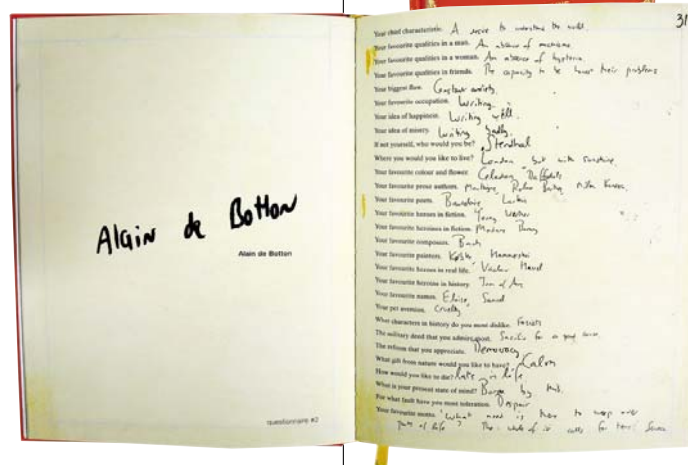 Alain de Botton
Alain de Botton
questionnaire #2
31
Your chief characteristic. A desire to understand the world.
Your favourite qualities in a man. An absence of
Your favourite qualities in a woman. An absence of hysteria.
Your favourite qualities in friends. The capacity to be their problems
Your biggest flaw. Constant anxiety.
Your favourite occupation. Writing.
Your idea of happiness. Writing well.
Your idea of misery. Writing badly.
If not yourself, who would you be? Stendhal
Where you would you like to live? London but with sunshine.
Your favourite colour and flower. Celadon, Daffodils
Your favourite prose authors. Montaigne, Roland Barthes, Milan Kundera.
Your favourite poets. Baudelaire Larkin
Your favourite heroes in fiction. Young Werther
Your favourite heroines in fiction. Madame Bovary
Your favourite composers. Bach
Your favourite painters. Hammershoi
Your favourite heroes in real life. Vaclav Havel
Your favourite heroines in history. Joan of Arc
Your favourite names. Eloise, Samuel
Your pet aversion. Cruelty
What characters in history do you most dislike. Fascists
The military deed that you admire most. Sacrifice for a good cause.
The reform that you appreciate. Democracy
What gift from nature would you like to have? Calm
How would you like to die? late in life
What is your present state of mind? by this.
For what fault have you most toleration. Despair
Your favourite motto. 'What need is there to weep over
parts of life? The whole of it calls for tears' Seneca